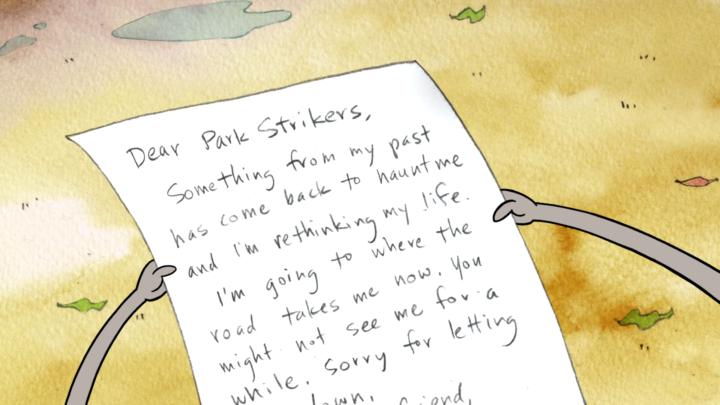 Dear Park Strikers,
Something from my past
has come back to haunt me
and I'm rethinking my life.
I'm going to where the
road takes me now. You
might not see me for a
while. Sorry for letting
down.
friend,